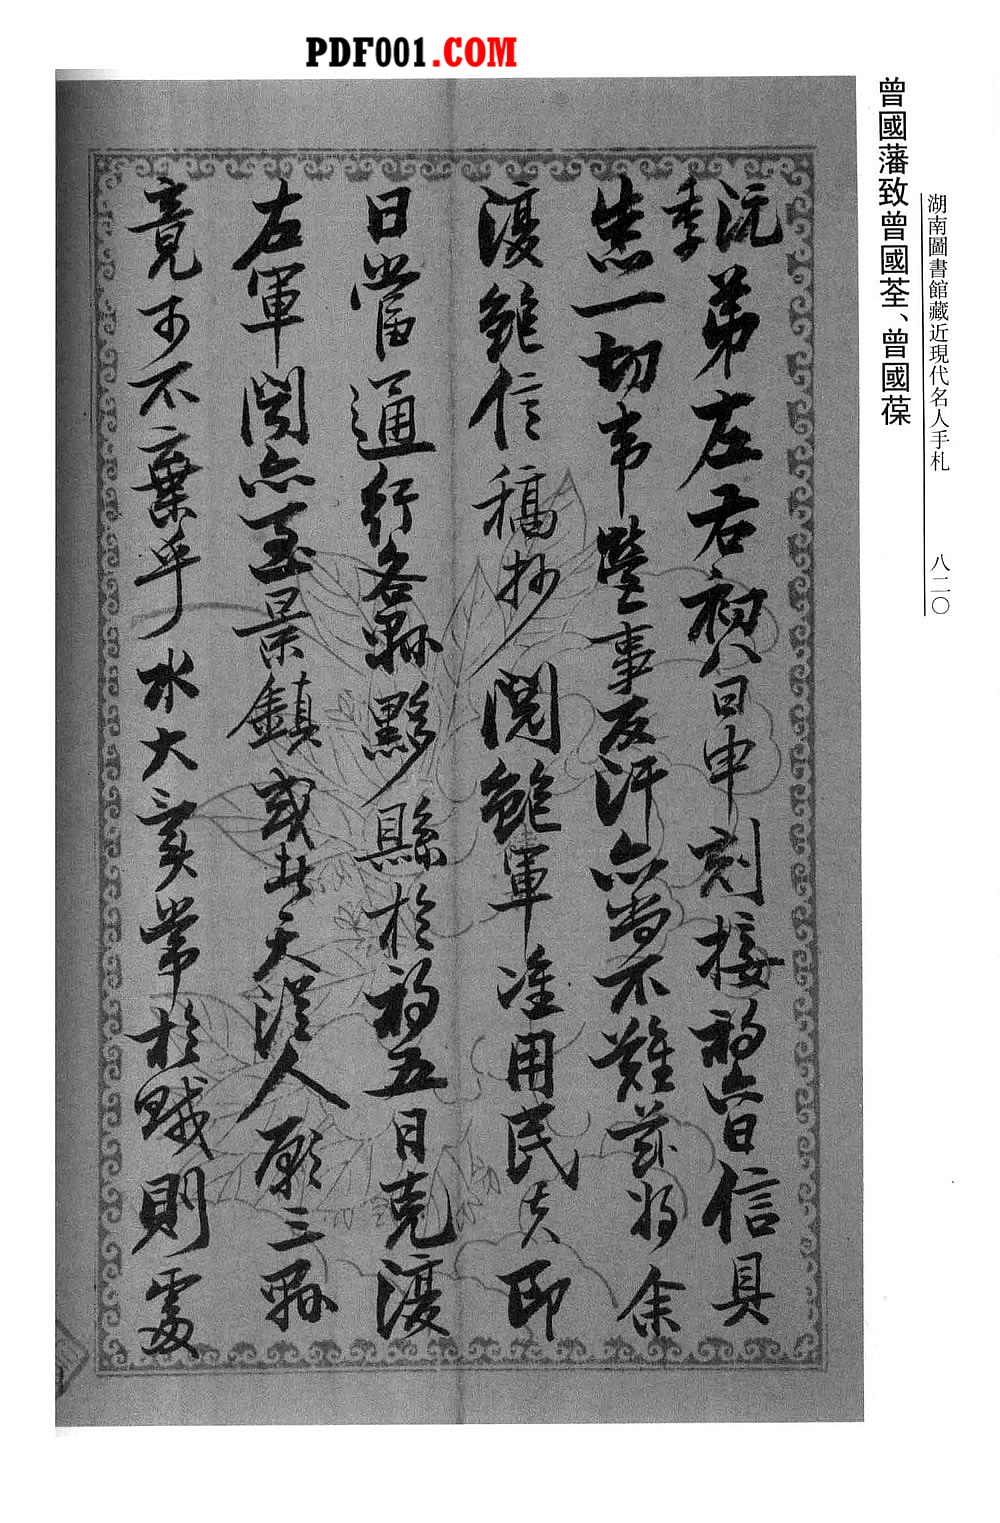 PDF001.COM
湖南圖書館藏近現代名人手札 八二〇
曾國藩致曾國荃、曾國葆
沅季弟左右初八日申刻接初六日信具
悉一切韦營事反汗亦尚不難茲將余
復鮑信稿抄閱鮑軍准用民夫即
日當通行各縣黟縣於初五日克復
左軍聞亦至景鎮或者天從人願三縣
竟可不棄乎水大異常於賊則處